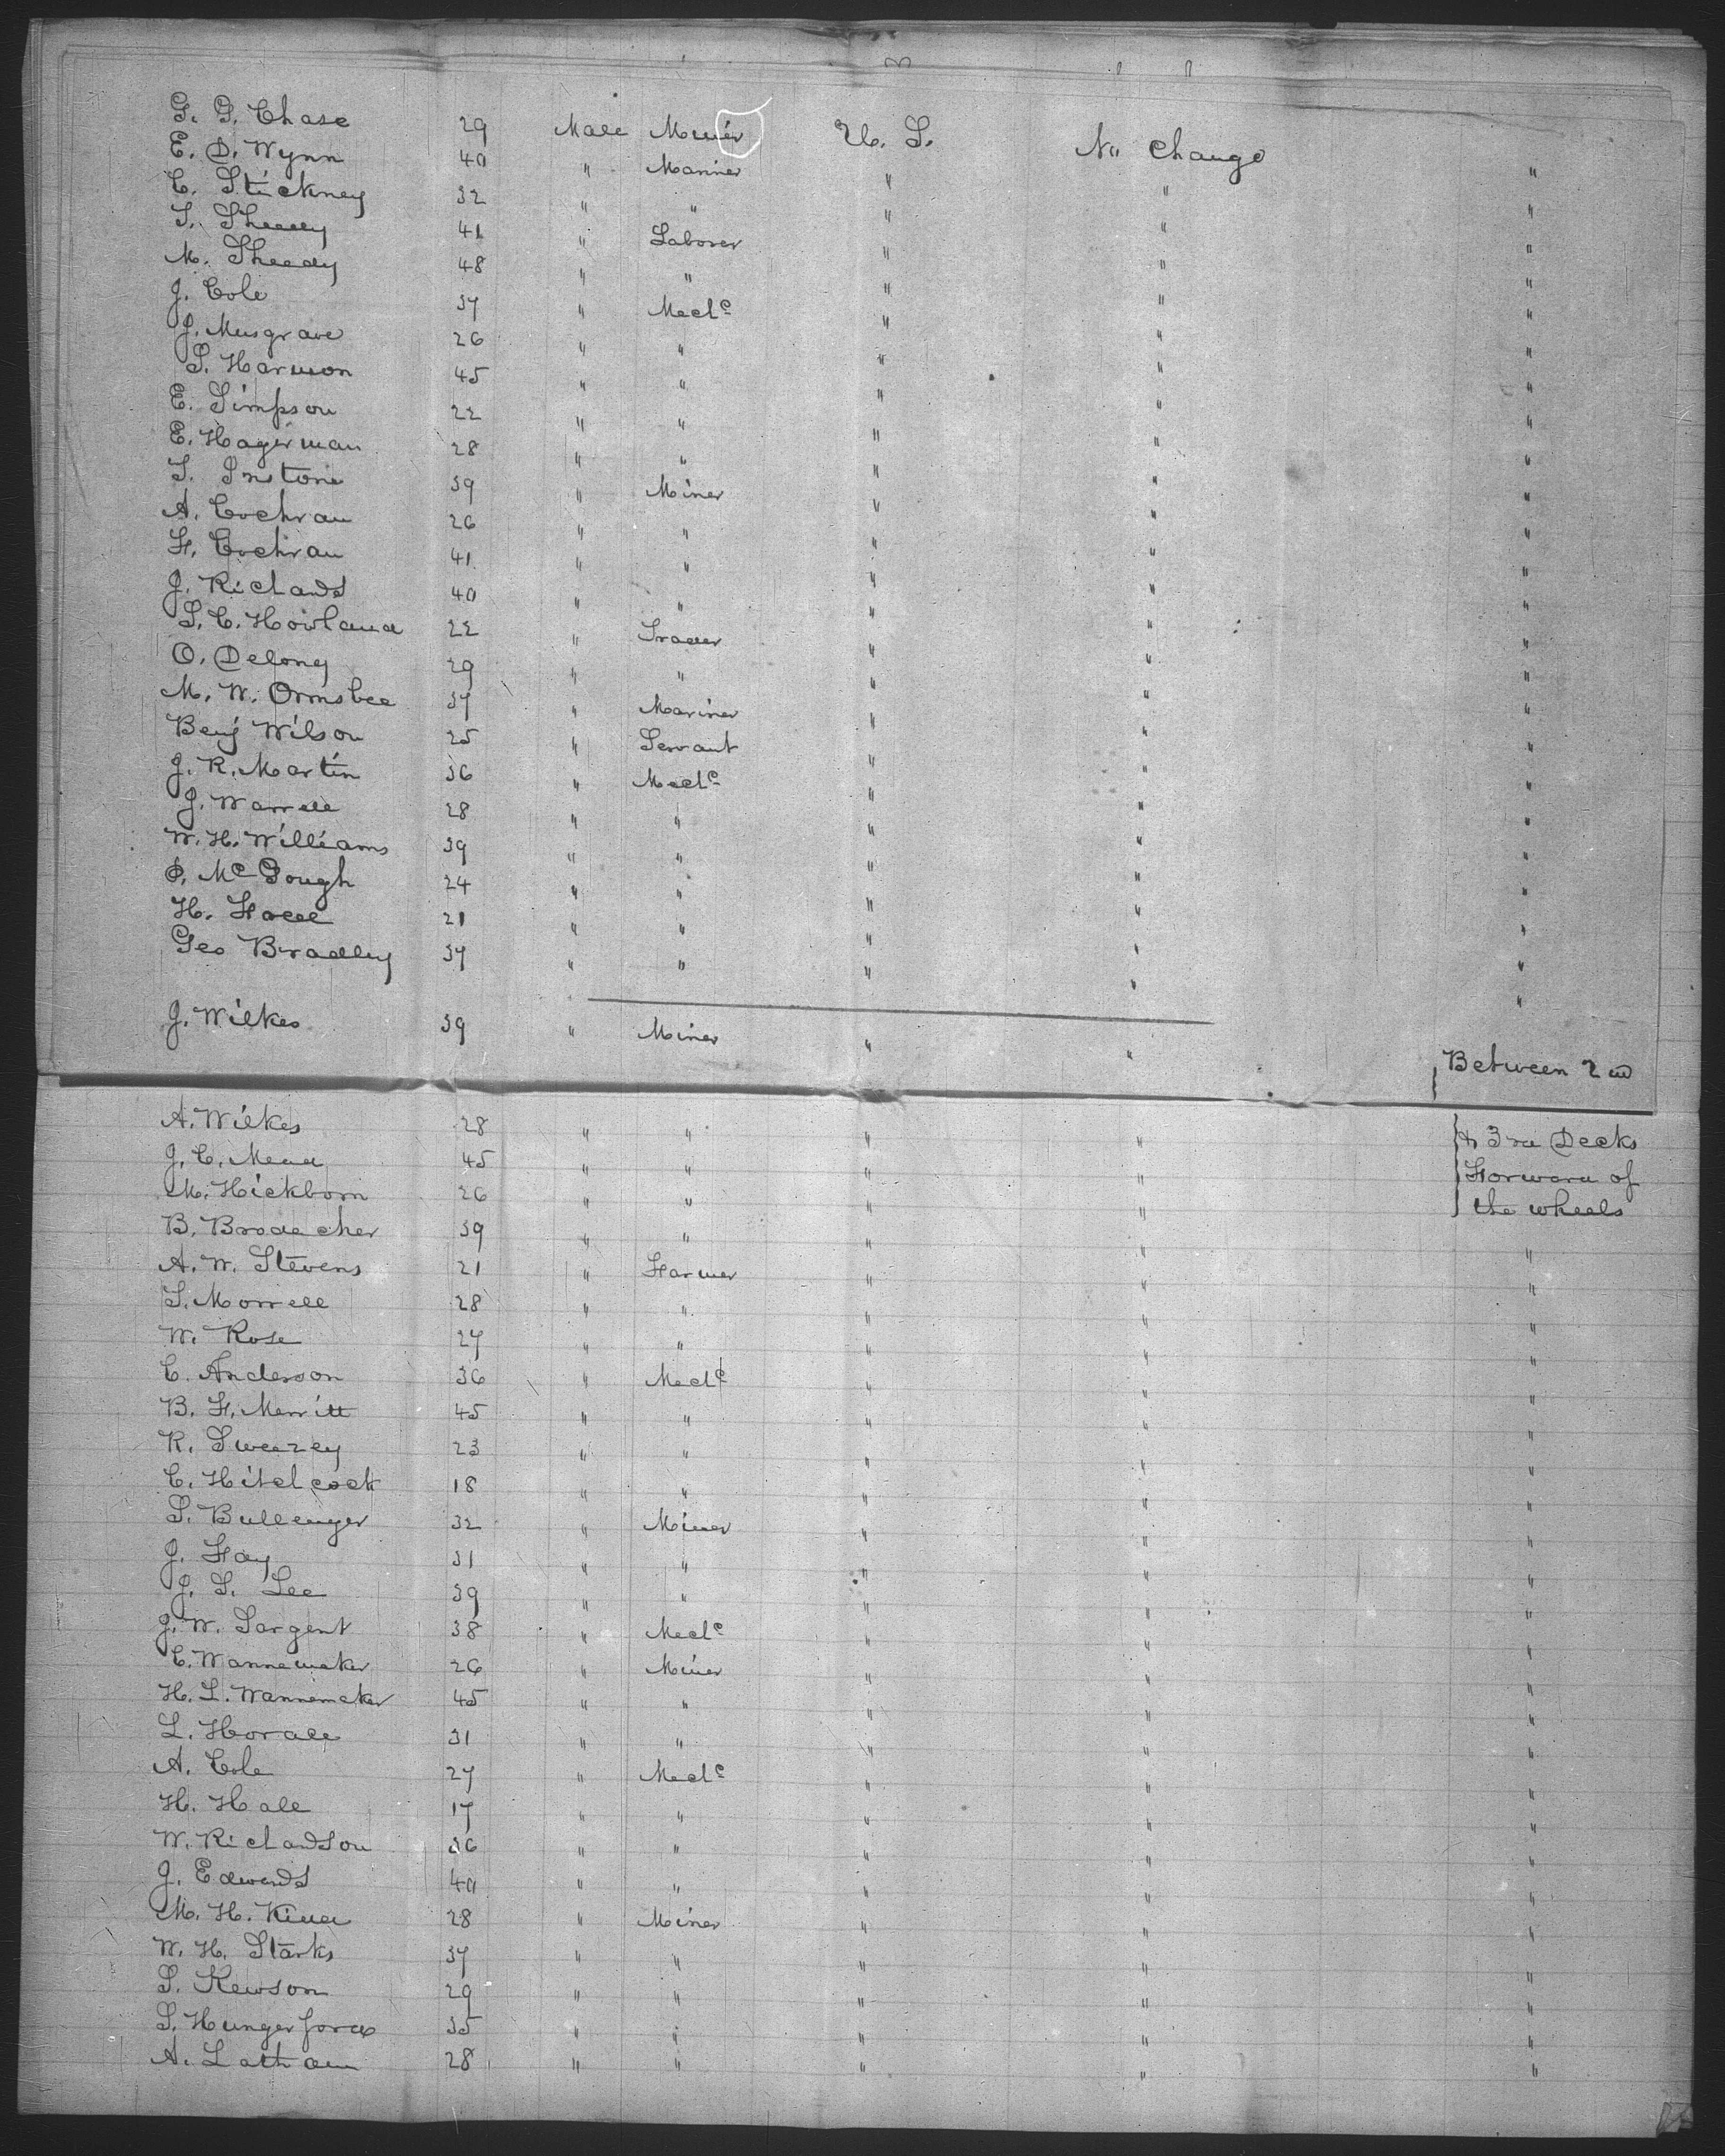 G. G. Chase 29 Male Miner U. S. No Change "
E. D. Wynn 40 " Mariner " " "
C. Stickney 32 " " " " "
S. Sheedy 41 " Laborer " " "
M. Sheedy 48 " " " " "
J. Cole 37 " Mech^c " " "
J. Musgrave 26 " " " " "
S. Harmon 45 " " " " "
E. Simpson 22 " " " " "
E. Hagerman 28 " " " " "
S. Instone 39 " Miner " " "
A. Cochran 26 " " " " "
F. Cochran 41 " " " " "
J. Richards 40 " " " " "
S. C. Howland 22 " Trader " " "
O. Delong 29 " " " " "
M. W. Ormsbee 37 " Mariner " " "
Benj Wilson 25 " Servant " " "
J. R. Martin 36 " Mech^c " " "
J. Warrell 28 " " " " "
W. H. Williams 39 " " " " "
Mc Gough 24 " " " " "
H. 21 " " " " "
Geo Bradley 37 " " " " "
J. Wilkes 39 " Miner " "
Between 2nd
A. Wilkes 28 " " " " & 3rd Decks
J. C. Mead 45 " " " " Forward of
M. Hickborn 26 " " " " the wheels
B. Brodacher 39 " " " " "
A. W. Stevens 21 " Farmer " " "
S. Morrell 28 " " " " "
W. Rose 27 " " " " "
C. Anderson 36 " Mech^c " " "
B. F. Merritt 45 " " " " "
R. Sweezey 23 " " " " "
C. Hitchcock 18 " " " " "
S. Bullenger 32 " Miner " " "
J. Fay 31 " " " " "
J. S. Lee 39 " " " " "
J. W. Sargent 38 " Mech^c " " "
C. Wannemaker 26 " Miner " " "
H. L. Wannemaker 45 " " " " "
L. Horall 31 " " " " "
A. Cole 27 " Mech^c " " "
H. Hall 17 " " " " "
W. Richardson 36 " " " " "
J. Edwards 40 " " " " "
M. H. 28 " Miner " " "
W. H. Starks 37 " " " " "
S. Kewson 29 " " " " "
S. Hungerford 35 " " " " "
A. Latham 28 " " " " "